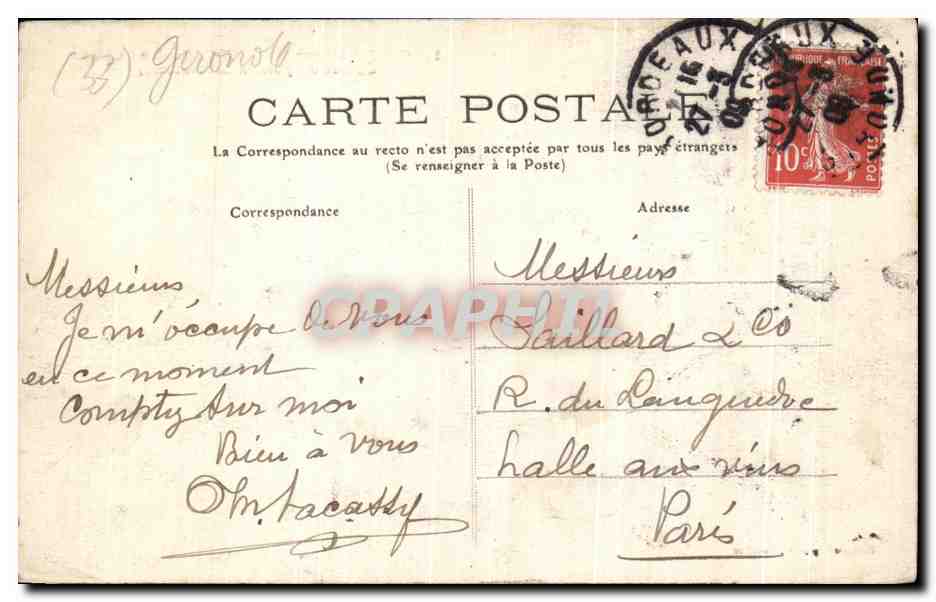 (33) Gironde
CARTE POSTALE
La Correspondance au recto n'est pas acceptée par tous les pays étrangers
(Se renseigner à la Poste)
Correspondance
Adresse
BORDEAUX
27-3
09
BORDEAUX
27-3
09
RÉPUBLIQUE FRANÇAISE
10c
POSTES
CPAPHIL
Messieurs
Je m'occupe de vous
en ce moment
Comptez sur moi
Bien à vous
Lacassy
Messieurs
Saillard & Co
R. du Languedoc
halle aux vins
Paris